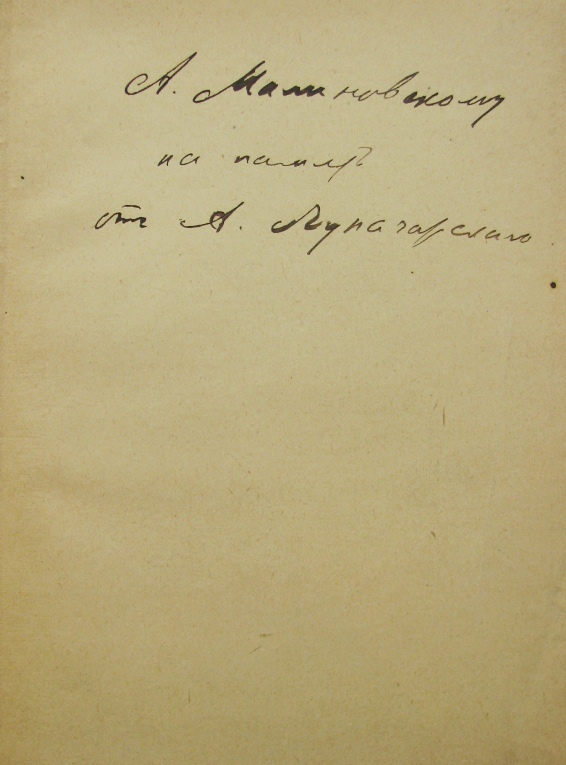 А. Малиновскому
на память
отъ А. Луначарскаго